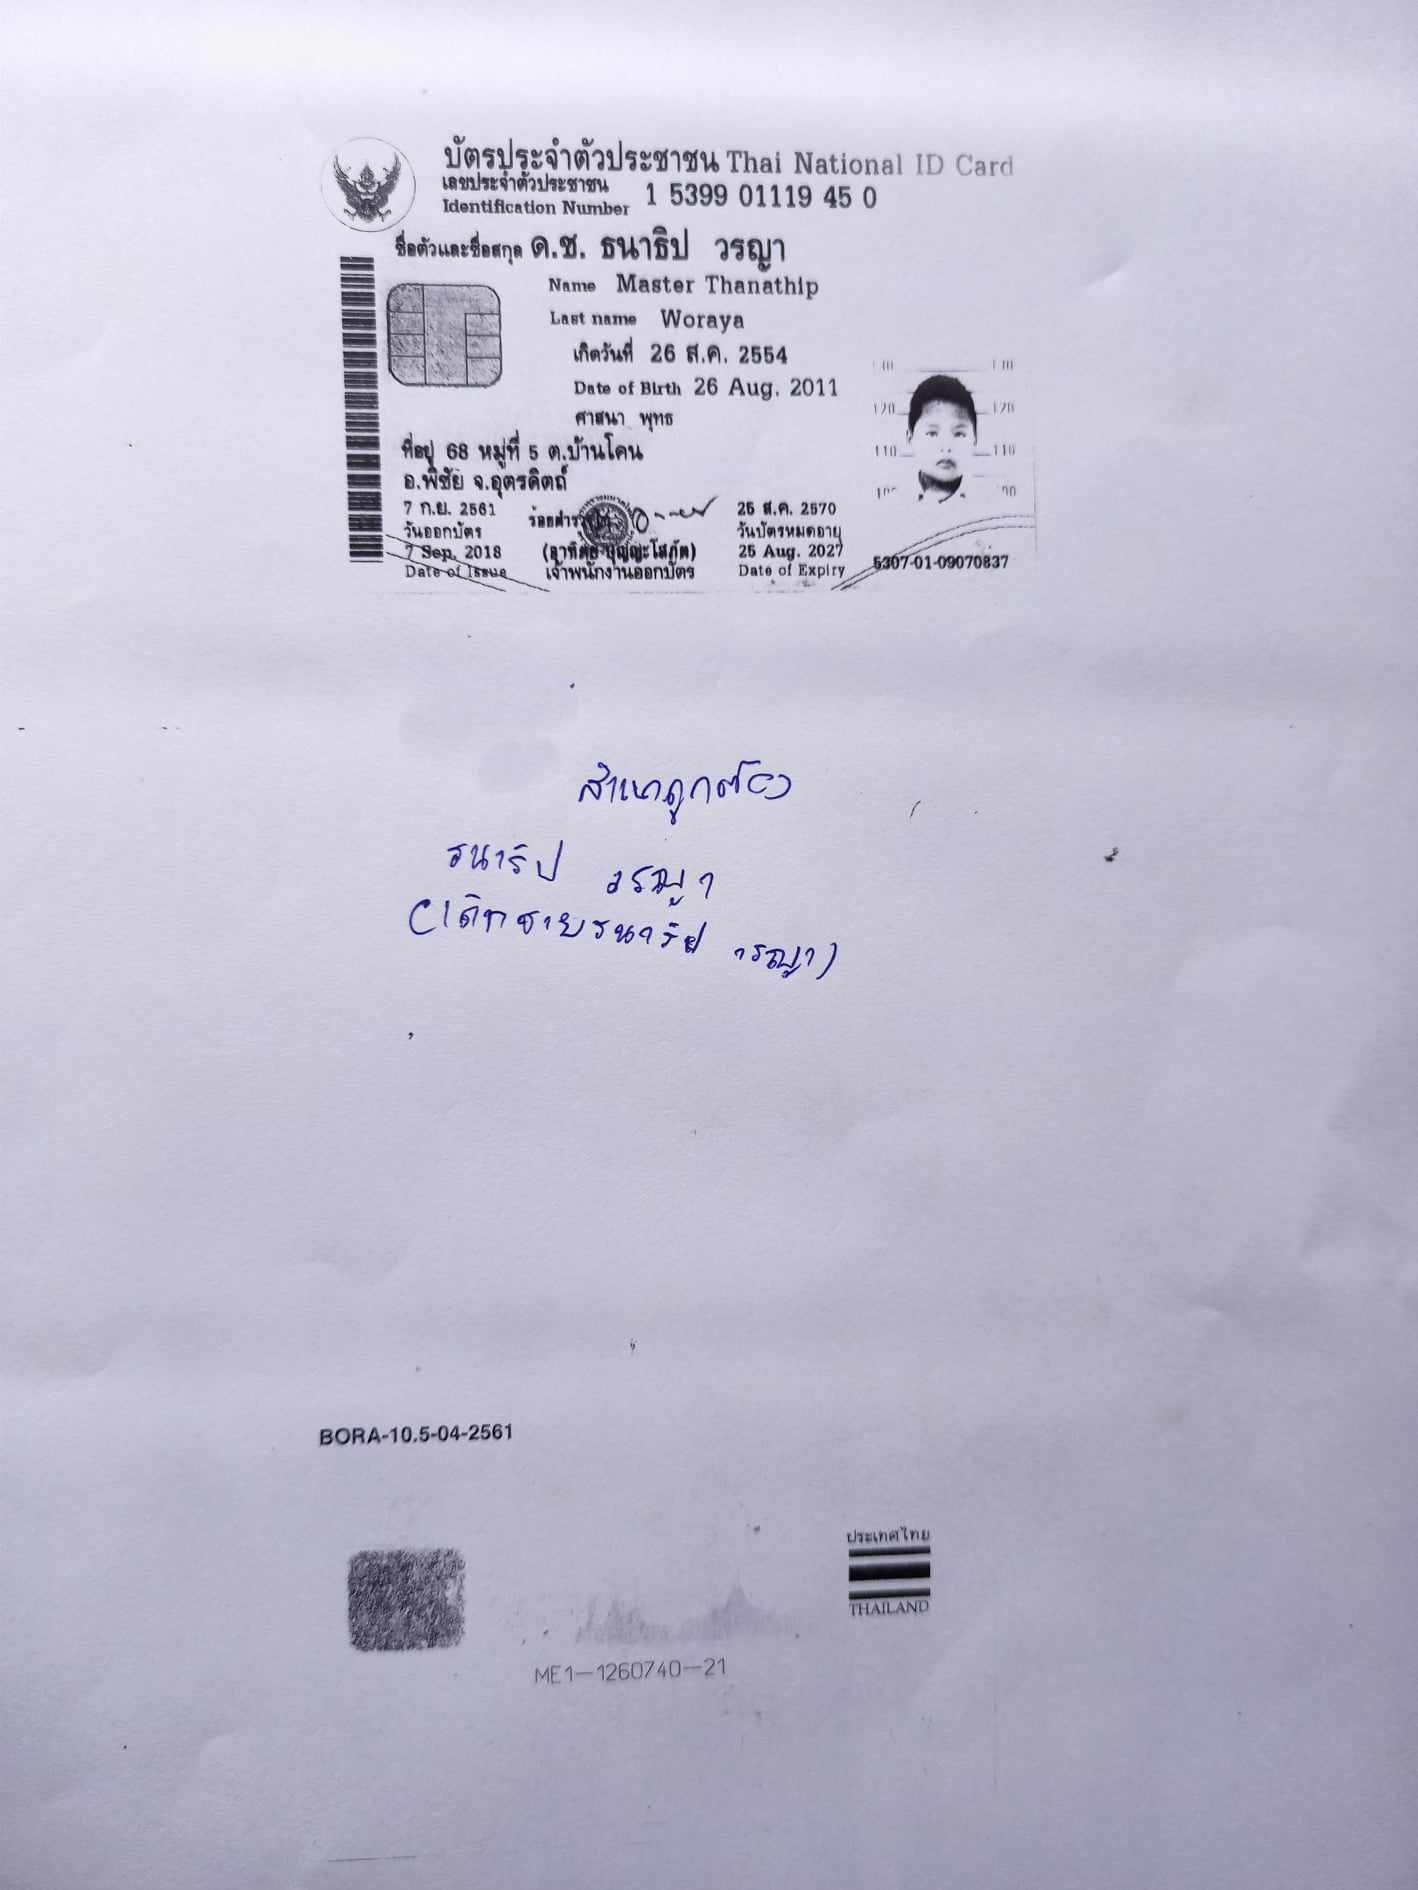 บัตรประจำตัวประชาชน Thai National ID Card
เลขประจำตัวประชาชน
Identification Number 1 5399 01119 45 0
ชื่อตัวและชื่อสกุล ด.ช. ธนาธิป วรญา
Name Master Thanathip
Last name Woraya
เกิดวันที่ 26 ส.ค. 2554
Date of Birth 26 Aug. 2011
ศาสนา พุทธ
120 120
110 110
ที่อยู่ 68 หมู่ที่ 5 ต.บ้านโคน
อ.พิชัย จ.อุตรดิตถ์
7 ก.ย. 2561
วันออกบัตร
7 Sep. 2018
Date of Issue
เจ้าพนักงานออกบัตร
25 ส.ค. 2570
วันบัตรหมดอายุ
25 Aug. 2027
Date of Expiry
5307-01-09070837
สำเนาถูกต้อง
ธนาธิป วรญา
(เด็กชายธนาธิป วรญา)
BORA-10.5-04-2561
ประเทศไทย
THAILAND
ME1-1260740-21